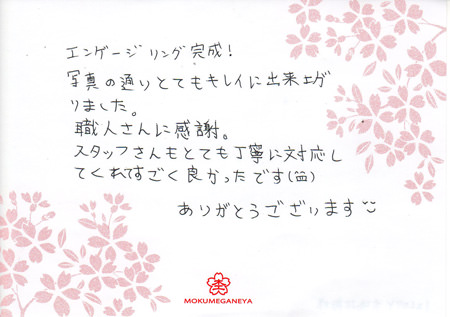 エンゲージリング完成！
写真の通りとてもキレイに出来上が
りました。
職人さんに感謝。
スタッフさんもとても丁寧に対応し
てくれすごく良かったです(笑)
ありがとうございます
MOKUMEGANEYA